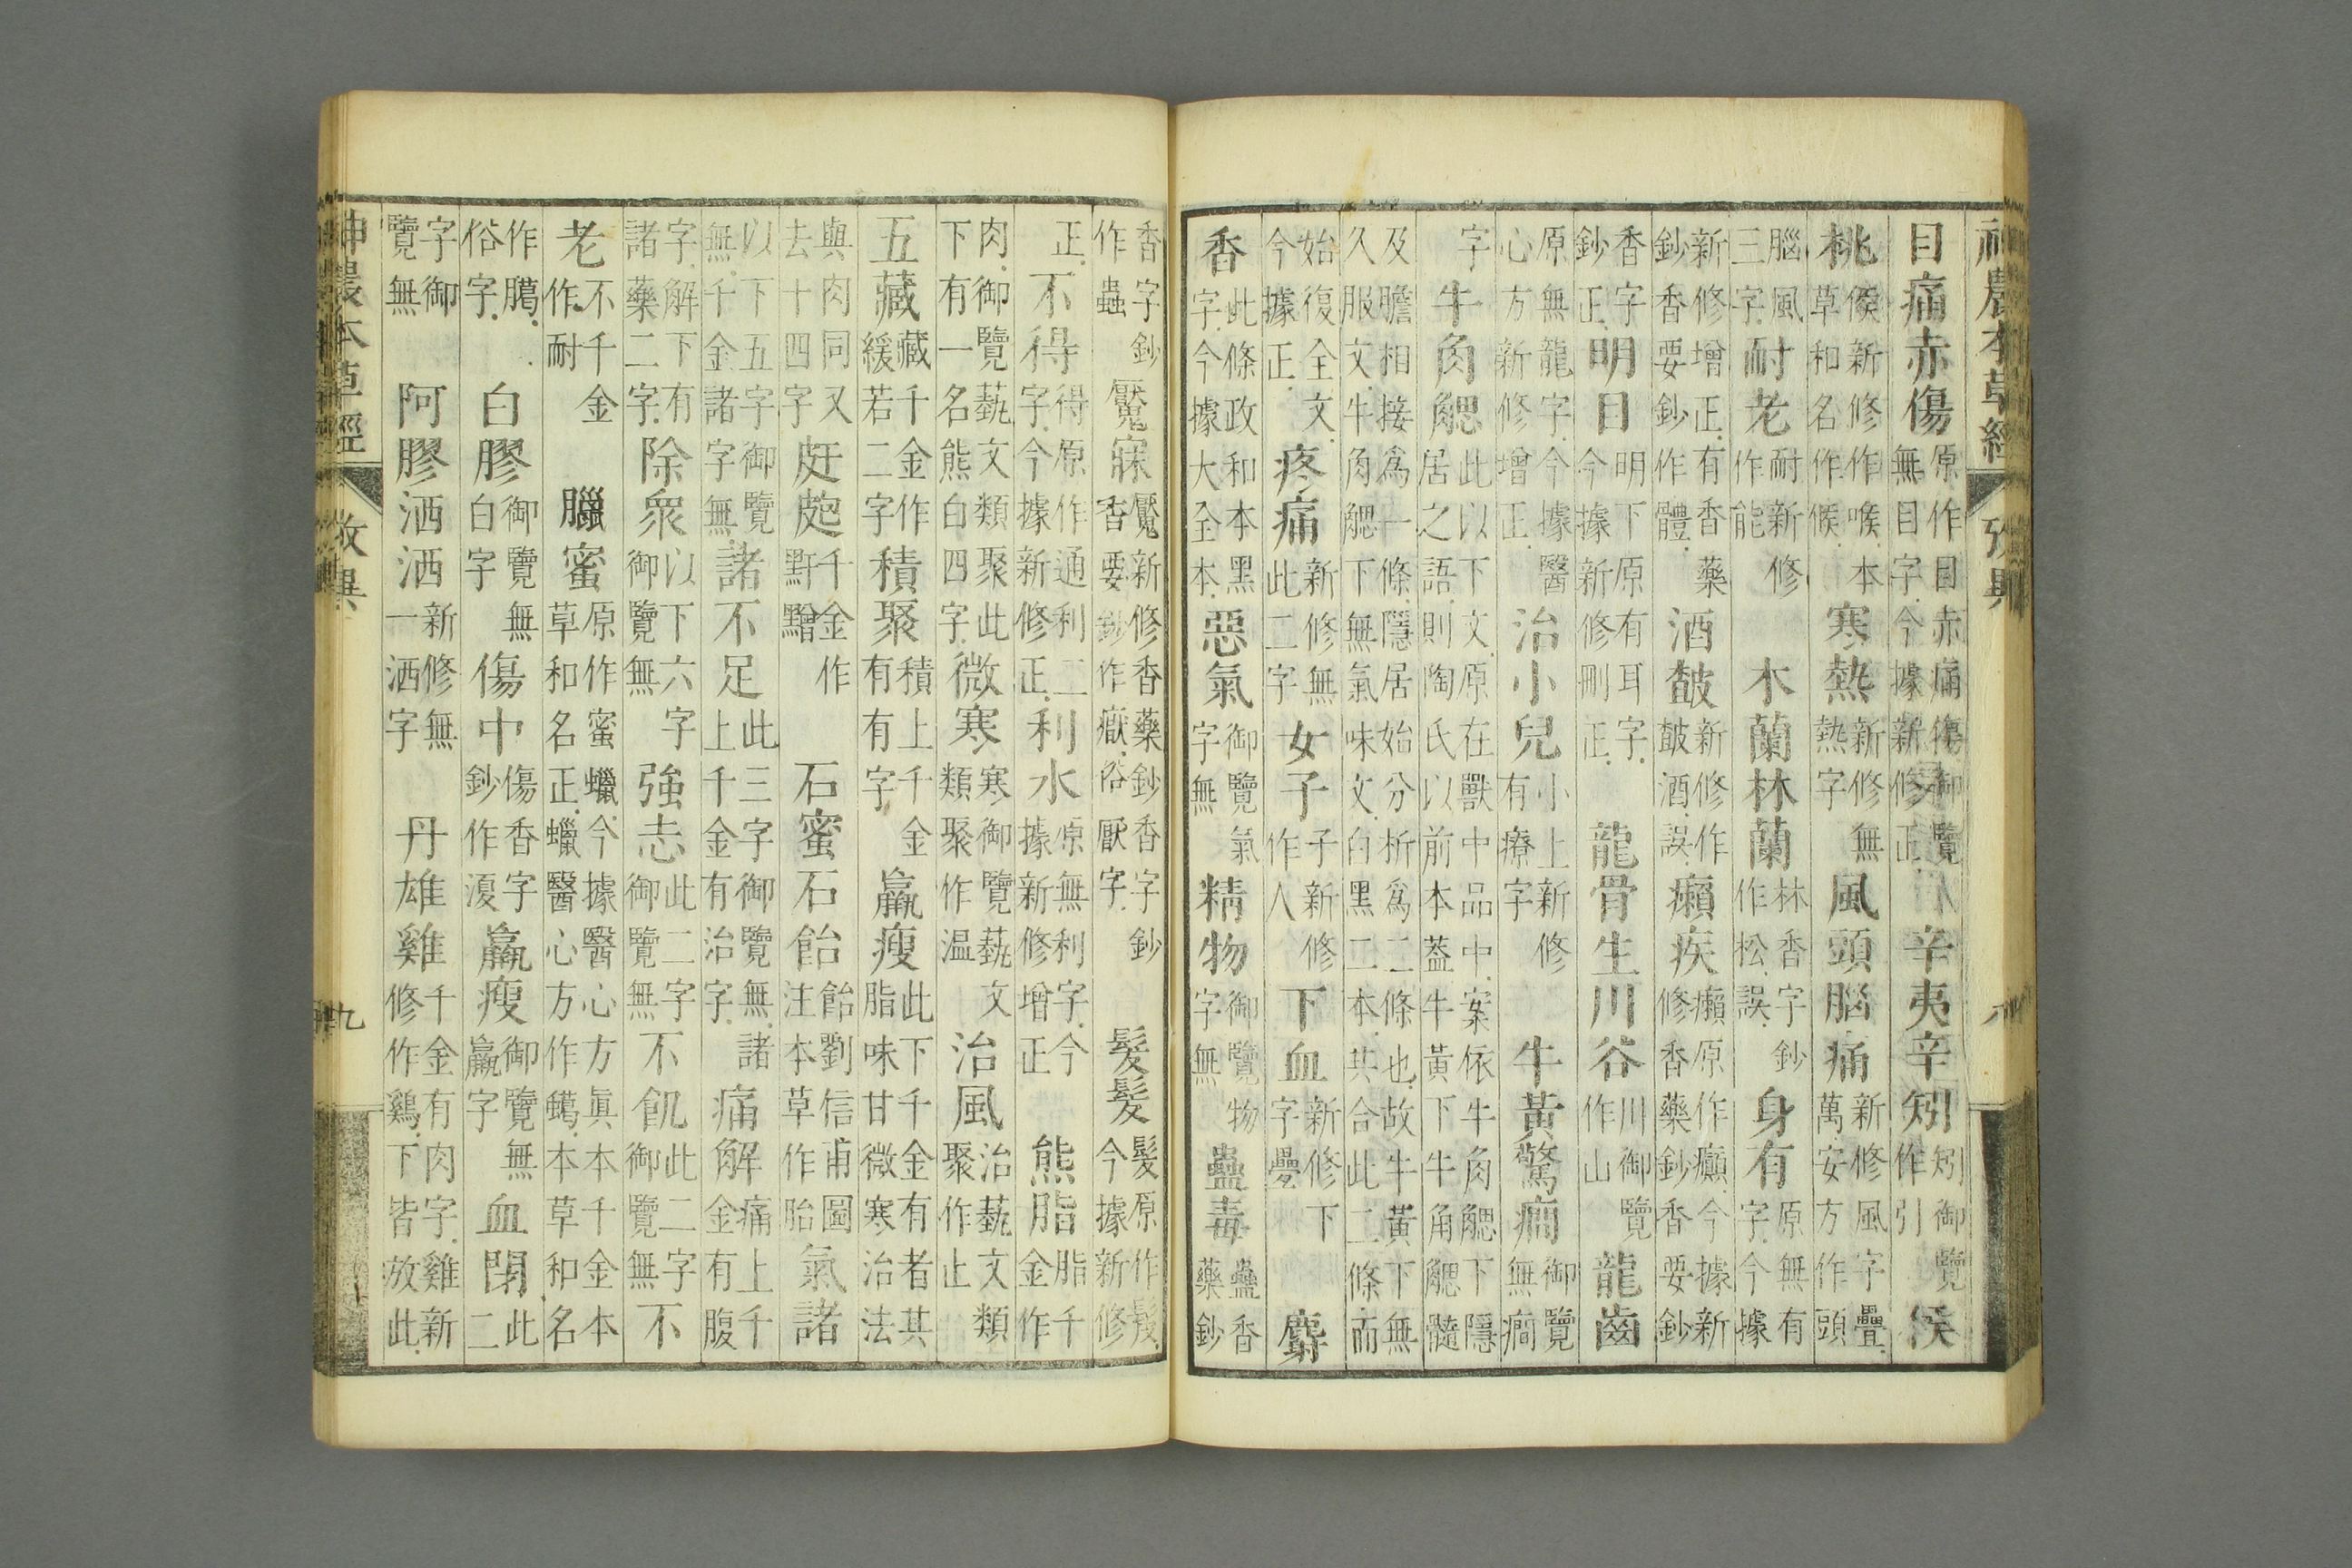 神農本草經 攷異 八
目痛赤傷原作目赤痛傷御覽無目字今據新修正 辛夷辛矧矧御覽作引 侯
桃㑋新修作喉本草和名作候 寒熱新修無熱字 風頭腦痛新修風字疊萬安方作頭
腦風三字 耐老耐新修作能 木蘭林蘭林香字鈔作松誤 身有原無有字今據
新修增正有香藥鈔香要鈔作體 酒皶新修作皶酒誤 癩疾癩原作癲今據新修香藥鈔香要鈔
香字鈔正 明目明下原有耳字今據新修刪正 龍骨生川谷川御覽作山 龍齒
原無龍字今據醫心方新修增正 治小兒小上新修有療字 牛黃驚癇御覽無癇
字 牛角䚡此以下文原在獸中品中案依牛角䚡下隱居之語則陶氏以前本蓋牛黃下牛角䚡髓
及膽相接爲一條隱居始分析爲二條也故牛黃下無久服文牛角䚡下無氣味文白黑二本共合此二條而
始復全文今據正 疼痛新修無此二字 女子子新修作人 下血新修下字疊 麝
香此條政和本黑字今據大全本 惡氣御覽氣字無 精物御覽物字無 蠱毒蠱香藥鈔
香字鈔作蟲 魘寐魘新修香藥鈔香字鈔香要鈔作俗厭字 髮髲髮原作髮今據新修
正 不得得原作通利二字今據新修正 利水原無利字今據新修增正 熊脂脂千金作
肉御覽藝文類聚此下有一名熊白四字 微寒寒御覽藝文類聚作温 治風治藝文類聚作止
五藏藏千金作緩若二字 積聚積上千金有有字 羸瘦此下千金有者其脂味甘微寒治法
與肉同又去十四字 皯皰千金作䵟䵴 石蜜石飴飴劉信甫圖注本草作胎 氣諸
以下五字御覽無千金諸字無 諸不足此三字御覽無諸上千金有治字 痛解痛上千金有腹
字解下有諸藥二字 除衆以下六字御覽無 強志此二字御覽無 不飢此二字御覽無 不
老不千金作耐 臘蜜原作蜜蠟今據醫心方眞本千金本草和名正蠟醫心方作䗶本草和名
作臈俗字 白膠御覽無白字 傷中傷香字鈔作溲 羸瘦御覽無羸字 血閉此二
字御覽無 阿膠洒洒新修無一洒字 丹雄雞千金有肉字雞新修作鷄下皆放此
神農本草經 攷異 九